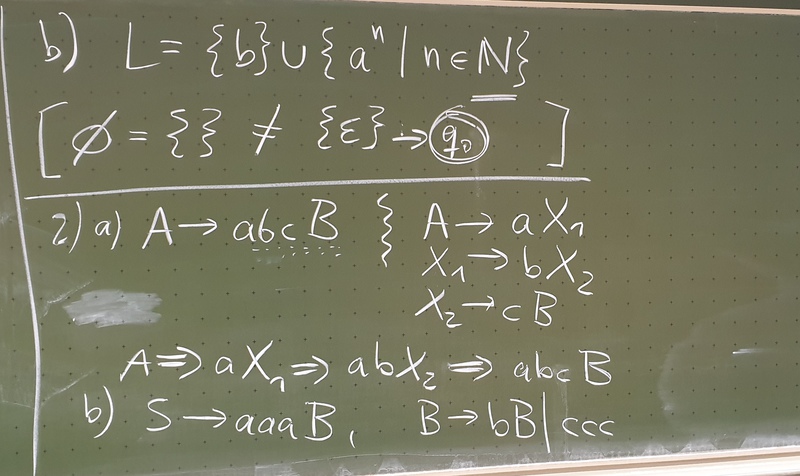 b) L = {b} ∪ {aⁿ | n ∈ N}
[ ∅ = {} ≠ {ε} → q₀ ]
2) a) A → abcB } A → aX₁
X₁ → bX₂
X₂ → cB
A ⇒ aX₁ ⇒ abX₂ ⇒ abcB
b) S → aaaB, B → bB | ccc